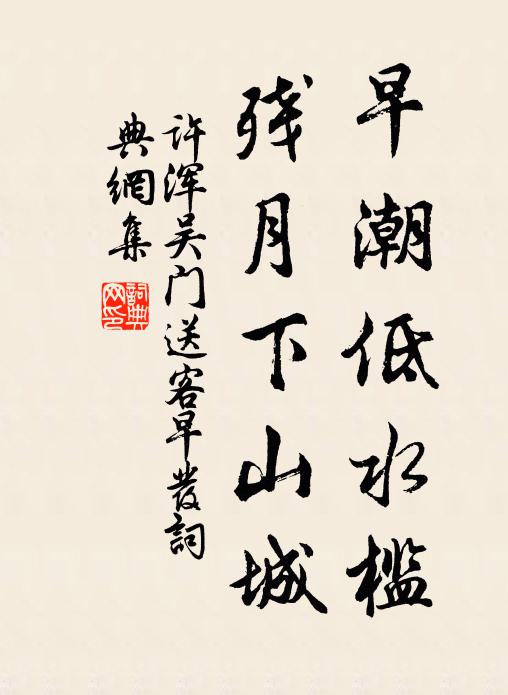 早潮低水槛
残月下山城
许浑吴门送客早發詞
典網集
詞典网印